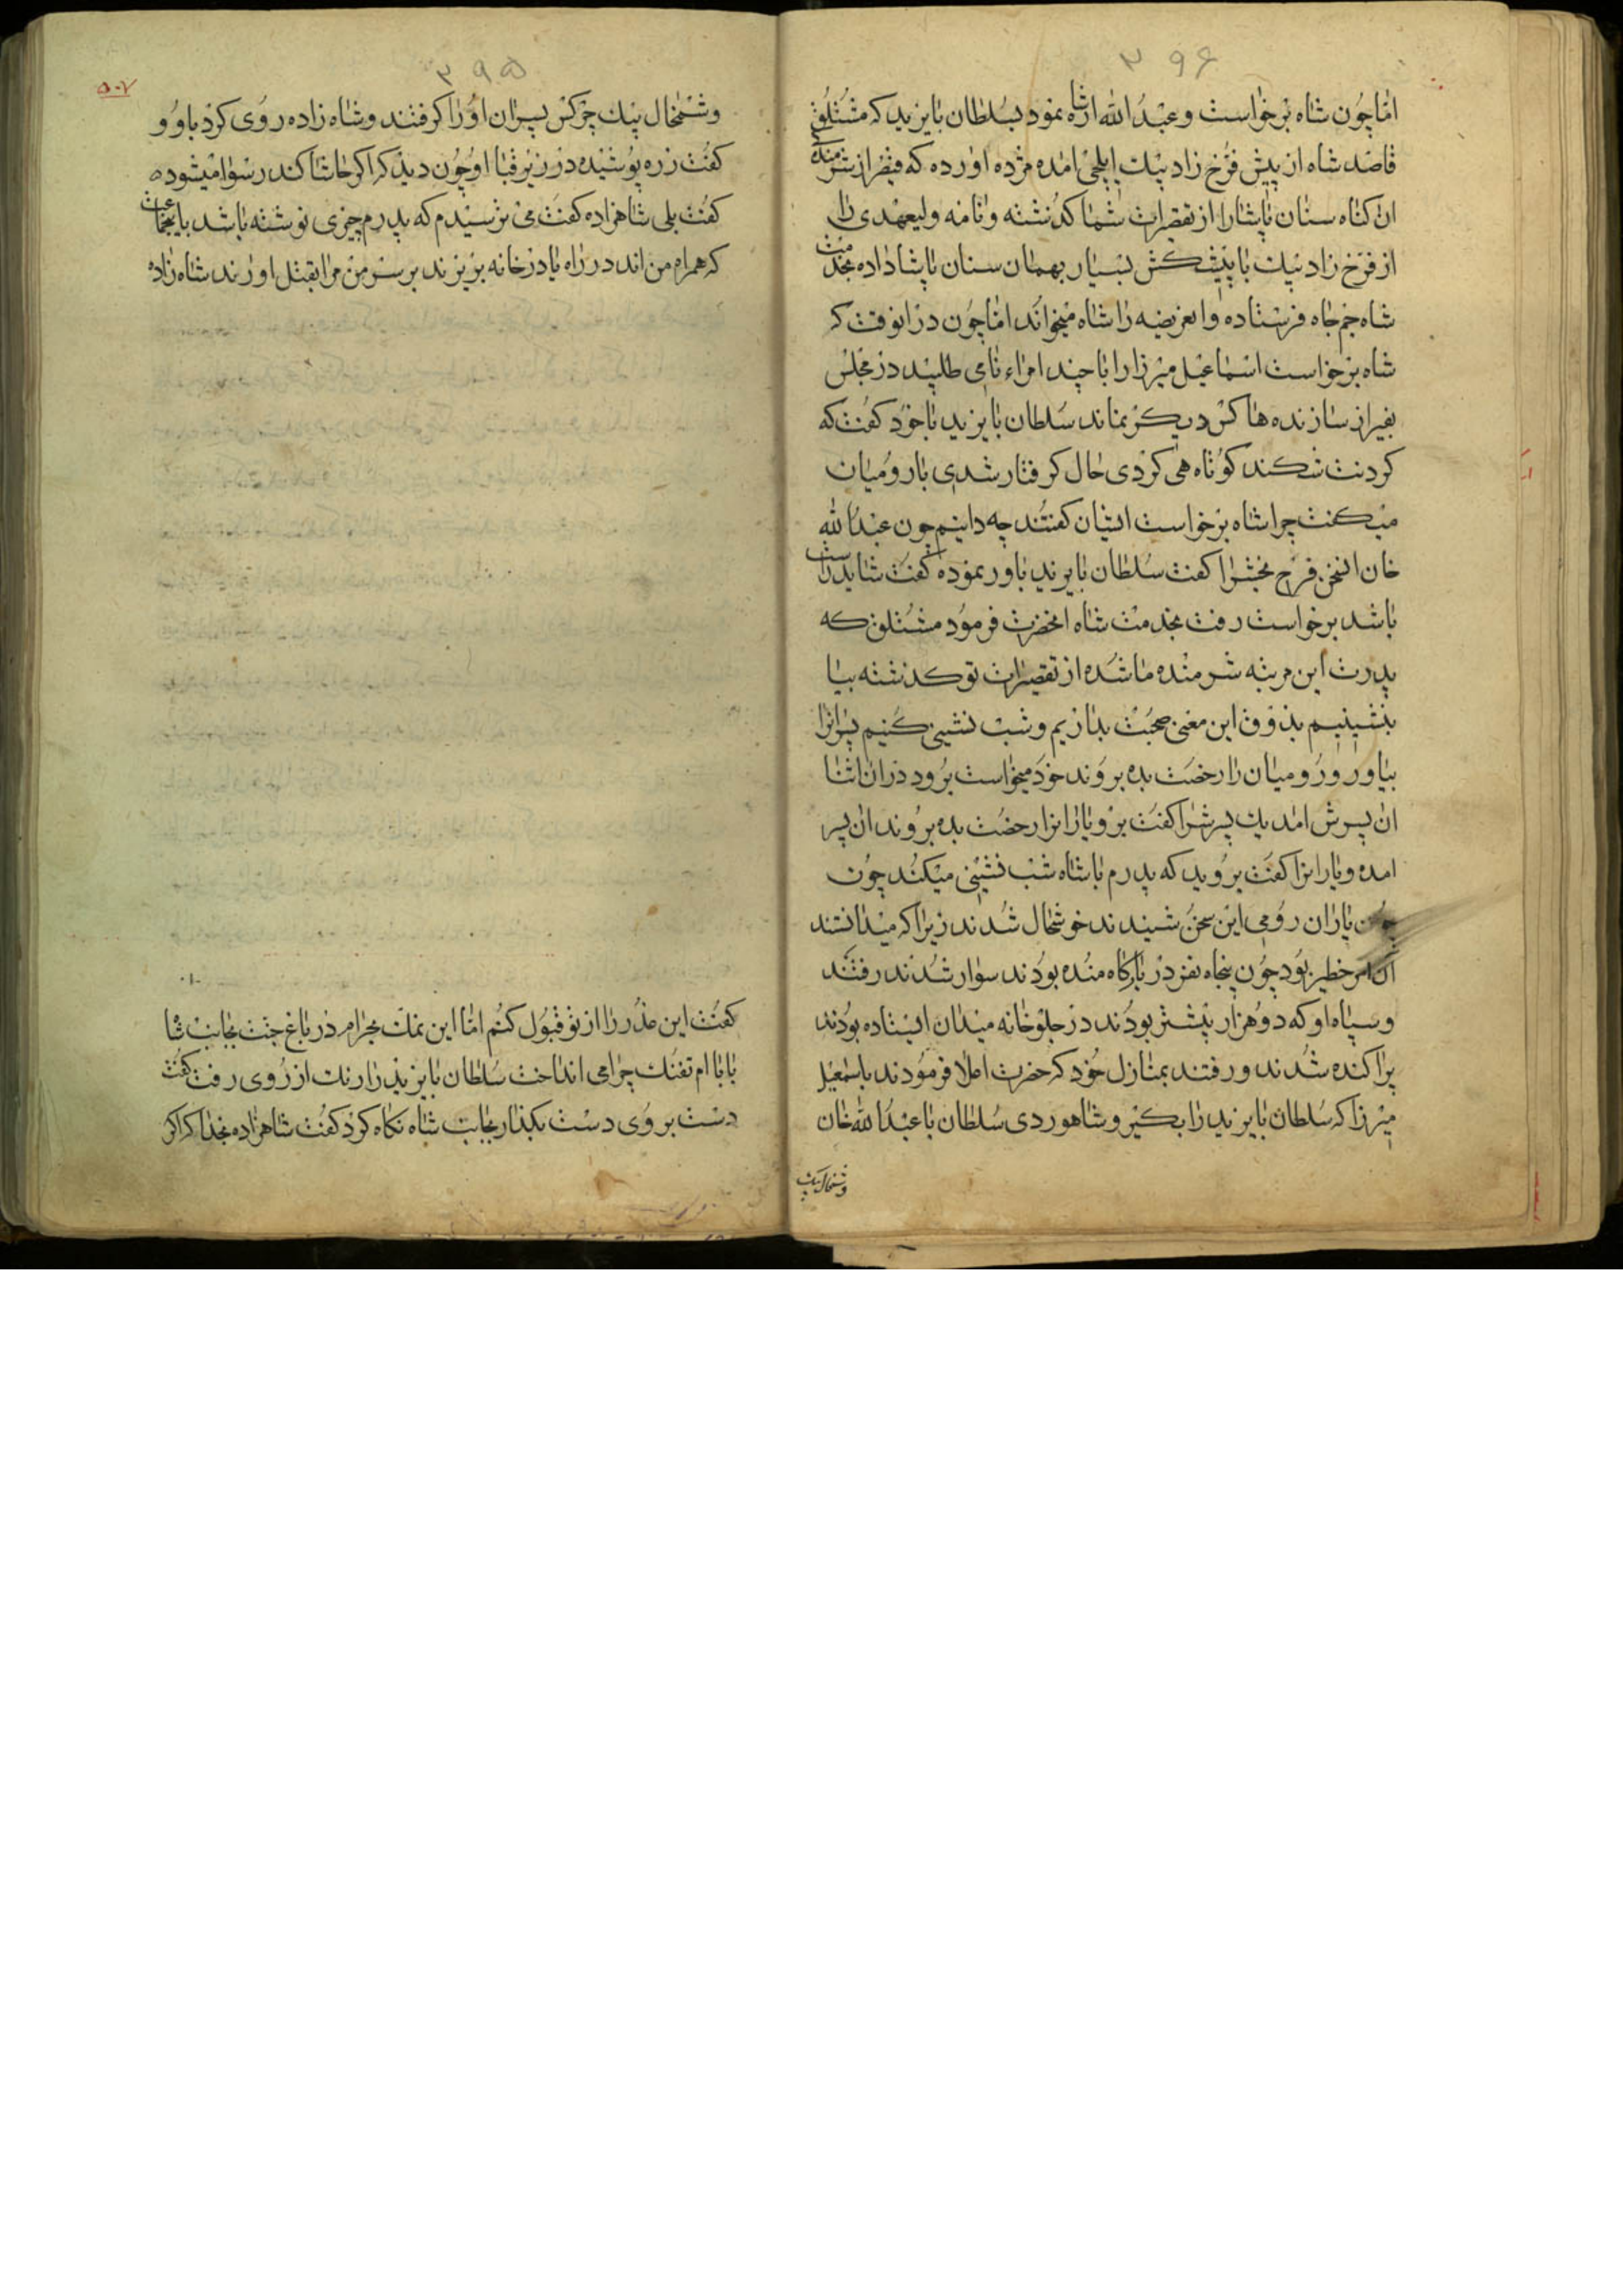 ۳۹۶
اما چون شاه برخواست و عبدالله اشاره نمود بسلطان بایزید که مشتلق
قاصد شاه از پیش فرخ زاد بیك ایلچی امده مژده اورده که قیصر از شرمنده کی
ان کناه سنان پاشارا از تقصیرات شما کذشته و نامه ولیعهدی را
از فرخ زاد بیك با پیشکش بسیار بهمان سنان پاشا داده بخدمت
شاه جم جاه فرستاده و ان عریضه را شاه میخواند اما چون در انوقت که
شاه برخواست اسماعیل میرزا را با چند امراء نامی طلبید در مجلس
بغیر از سازنده ها کس دیکر نماند سلطان بایزید با خود کفت که
کردنت شکند کوتاه همی کردی حال کرفتار شدی با رومیان
میکفت چرا شاه برخواست ایشان کفتند چه دانیم چون عبدالله
خان انسخن فرح بخش را کفت سلطان بایزید باور نموده کفت شاید راست
باشد برخواست رفت بخدمت شاه انحضرت فرمود مشتلق که
پدرت این مرتبه شرمنده ما شده از تقصیرات تو کذشته بیا
بنشینیم بذوق این معنی صحبت بداریم و شب نشینی کنیم پسرانرا
بیاور و رومیان را رخصت بده بروند خود میخواست برود در ان اثنا
ان پسرش امد یك پسرش را کفت برو یارانرا رخصت بده بروند ان پسر
امده و یارانرا کفت بروید که پدرم با شاه شب نشینی میکند چون
چون یاران رومی این سخن شنیدند خوشحال شدند زیرا که میدانستند
ان امر خطیر بود چون پنجاه نفر در بارکاه مانده بودند سوار شدند رفتند
و سپاه او که دوهزار بیشتر بودند در جلوخانه میدان ایستاده بودند
پراکنده شدند و رفتند بمنازل خود که حضرت اعلا فرمودند باسمعیل
میرزا که سلطان بایزید را بکیر و شاهوردی سلطان با عبدالله خان
و شمخال بیك
۳۹۵
۵۰۷
و شمخال بیك چرکس پسران او را کرفتند و شاه زاده روی کرد باو و
کفت زره پوشیده در زیر قبا او چون دید که اکر حاشا کند رسوا میشود
کفت بلی شاهزاده کفت می ترسیدم که پدرم چیزی نوشته باشد باینجماعت
که همراه من اند در راه یا در خانه بریزند بر سر من مرا بقتل اورند شاه زاده
کفت این عذر را از تو قبول کنم اما این نمك بحرام در باغ جنت بجانب شاه
بابا ام تفنك چرا می انداخت سلطان بایزید را رنك از روی رفت کفت
دست بر وی دست بکذار بجانب شاه نکاه کرد کفت شاهزاده بخدا که اکر